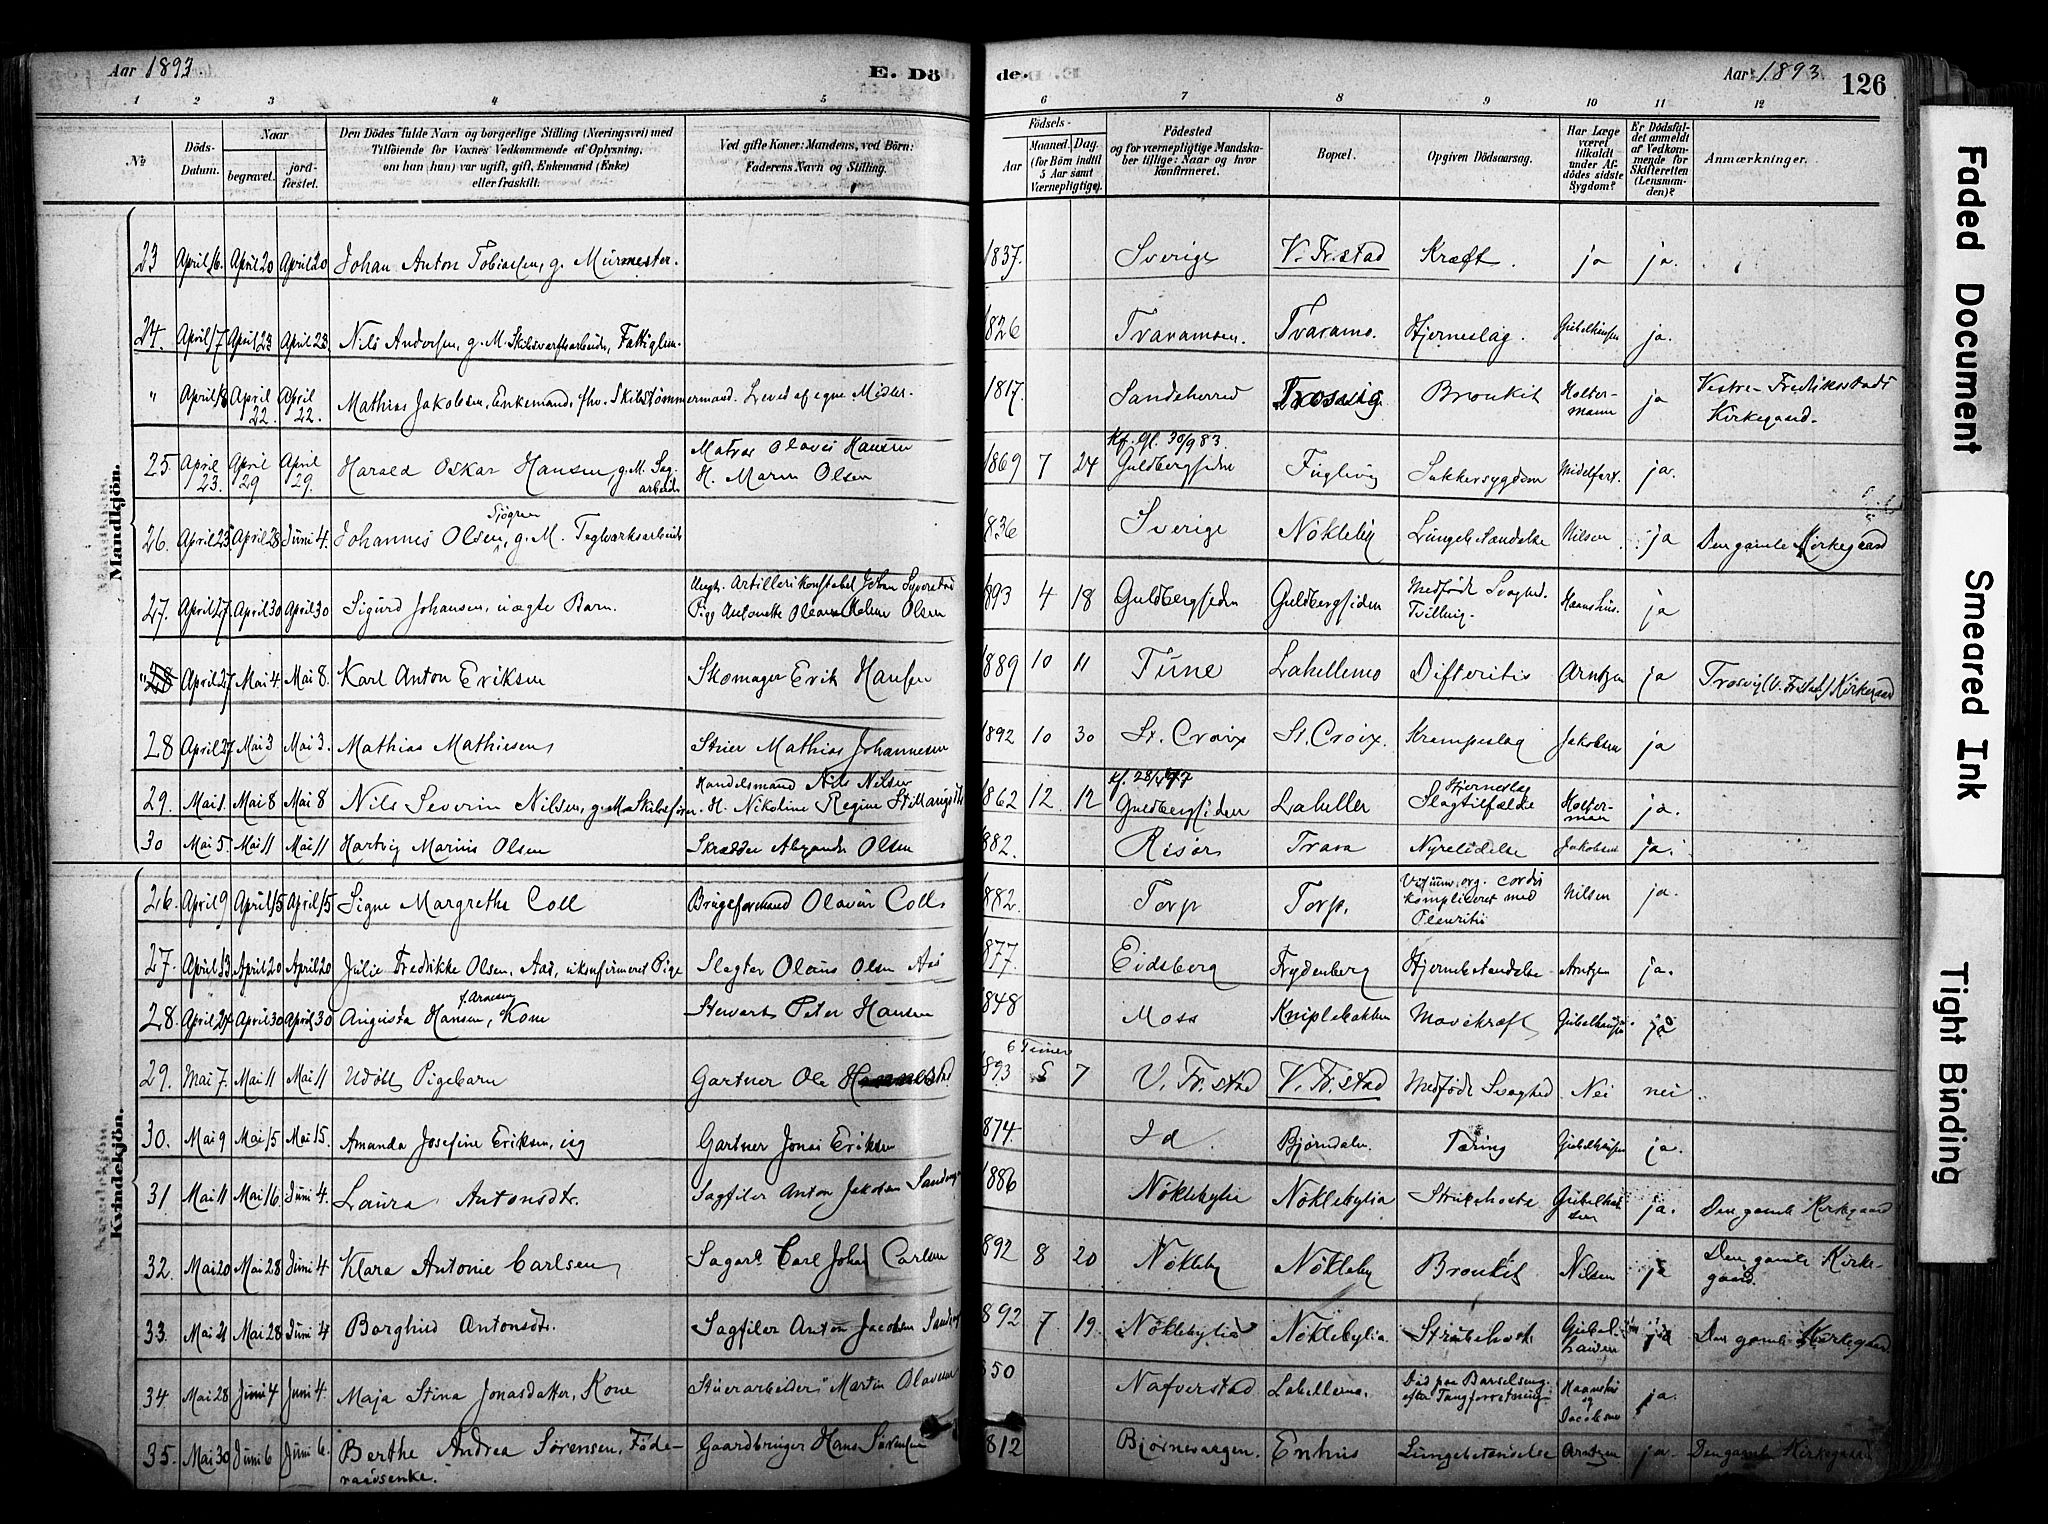 Aar 1893
E. Dö
de.
Aar 1893
126
1 2 3 4 5 6 7 8 9 10 11 12
No
Döds-
Datum.
Naar
begravet.
jord-
fæstet.
Den Dödes fulde Navn og borgerlige Stilling (Næringsvei) med
Tilföiende for Voxnes Vedkommende af Oplysning,
om han (hun) var ugift, gift, Enkemand (Enke)
eller fraskilt.
Ved gifte Koner: Mandens, ved Börn:
Faderens Navn og Stilling.
Födsels-
Aar
Maaned. Dag.
(for Börn indtil
5 Aar samt
Værnepligtige).
Födested
og for værnepligtige Mandska-
ber tillige: Naar og hvor
konfirmeret.
Bopæl.
Opgiven Dödsaarsag.
Har Læge
været
tilkaldt
under Af-
dödes sidste
Sygdom?
Er Dödsfal-
det anmeldt
af Vedkom-
mende for
Skifteretten
(Lensman-
den)?
Anmærkninger.
Mandkjön.
23 April 16. April 20 April 20 Johan Anton Tobiassen, g. Murmester. 1837. Sverige V. Fr.stad Kræft. ja ja.
24. April 17 April 23 April 23. Nils Andersen, g. M. Skibsværftsarbeider, Fattiglem. 1826 Tvaramoen. Tvaramo. Hjerneslag. Gubelhausen ja.
" April 18 April 22. April 22. Mathias Jakobsen, Enkemand, fhv. Skibstømmermand. Leved af egne Midler. 1817. Sandeherred Trosvig Bronkit Holter-
mann ja Vestre Fredriksstads
Kirkegaard.
25 April 23. April 29 April 29. Harald Oskar Hansen, g. M. Sag-
arbeider Matros Olaves Hansen
H. Maren Olsen 1869 7 24 Kf. Gl. 30/9 83.
Guldbergsiden Fuglevig Sukkersygdom Midelfart. ja.
26. April 25 April 28 Juni 4. Johannes Olsen, Sjøgren g. M. Teglværksarbeider 1836 Sverige Nökleby Lungebetændelse Nilsen ja Den gamle Kirkegaard
27. April 27. April 30 April 30 Sigurd Johansen, uægte Barn. Ungk. Artillerikonstabel Johan Syverstad
Pige Antonette Oleane Olsen 1893 4 18 Guldbergsiden Guldbergsiden Medfödt Svaghed.
Tvilling. Haanshus. ja
" April 27. Mai 4. Mai 8. Karl Anton Eriksen Skomager Erik Hansen 1889 10 11 Tune Lahellemo Difteritis Arntzen ja Trosvig (V. Fr.stad) Kirkegaard
28 April 27 Mai 3 Mai 3. Mathias Mathiesen Stuer Mathias Johannesen 1892 10 30 St. Croix St. Croix. Krampeslag Jakobsen ja
29. Mai 1. Mai 8 Mai 8 Nils Severin Nilsen, g. M. Skibsfører. Handelsmand Nils Nilsen
H. Nikoline Regine 1862 12 12 Kf. 28/ 77
Guldbergsiden Laheller Hjerneslag
Slagtilfælde Holter-
man ja.
30 Mai 5. Mai 11 Mai 11 Hartvig Marius Olsen Skrædder Alexander Olsen 1882. Risør Trara Nyrelidelse Jakobsen ja.
Kvindekjön.
26. April 9 April 15 April 15. Signe Margrethe Coll Brugsformand Olavus Coll 1882. Torp Torp. Vitium org. cordis
kompliceret med
Pleuritis Nilsen ja.
27. April 13 April 20 April 20 Julie Fredrikke Olsen, Aas, ukonfirmeret Pige Slagter Olaus Olsen Aas 1877. Eidsberg Frydenberg Hjernebetændelse Arntzen ja.
28. April 24 April 30 April 30 Augusta Hansen, f. Arnesen Kone Stewert Peter Hansen 1848 Moss Kniplebakken Mavekræft Gubelhausen ja
29. Mai 7. Mai 11 Mai 11 Udöbt Pigebarn Gartner Ole 1893 6 Timer
5 7 V. Fr.stad V. Fr.stad Medfödt Svaghed Nei nei
30. Mai 9 Mai 15 Mai 15. Amanda Josefine Eriksen, ug Gartner Jonas Eriksen 1874. Id. Bjørndalen. Tæring Gubelhausen ja.
31 Mai 11 Mai 16 Juni 4. Laura Antonsdtr. Sagfiler Anton Jakobsen Sandvig 1886 Nöklebylia Nöklebylia Strubehoste Gubelhau-
sen ja. Den gamle Kirkegaard
32. Mai 20 Mai 28 Juni 4 Klara Antonie Carlsen Sagarb. Carl Johan Carlsen 1892 8 20 Nökleby Nökleby Bronkit Nilsen ja Den gamle Kirke-
gaard.
33. Mai 21 Mai 28 Juni 4 Borghild Antonsdtr. Sagfiler Anton Jacobsen Sandvig 1892 7 19. Nöklebylia Nöklebylia. Strubehoste Gubel-
hausen ja Den gamle Kirkegaard.
34. Mai 28 Juni 4 Juni 4. Maja Stina Jonasdatter, Kone Stuerarbeider Martin Olavesen 1850 Nafverstad Lahellemo. Död paa Barselseng.
efter Tangforretning. Haanshus
og
Jacobsen ja.
35. Mai 30 Juni 6 Juni 6. Berthe Andrea Sørensen, Föde-
raadsenke. Gaardbruger Hans Sørensen 1812 Bjørnevaagen. Enhus Lungebetændelse Arntzen ja. Den gamle Kirkegaard
Faded Document
Smeared Ink
Tight Binding